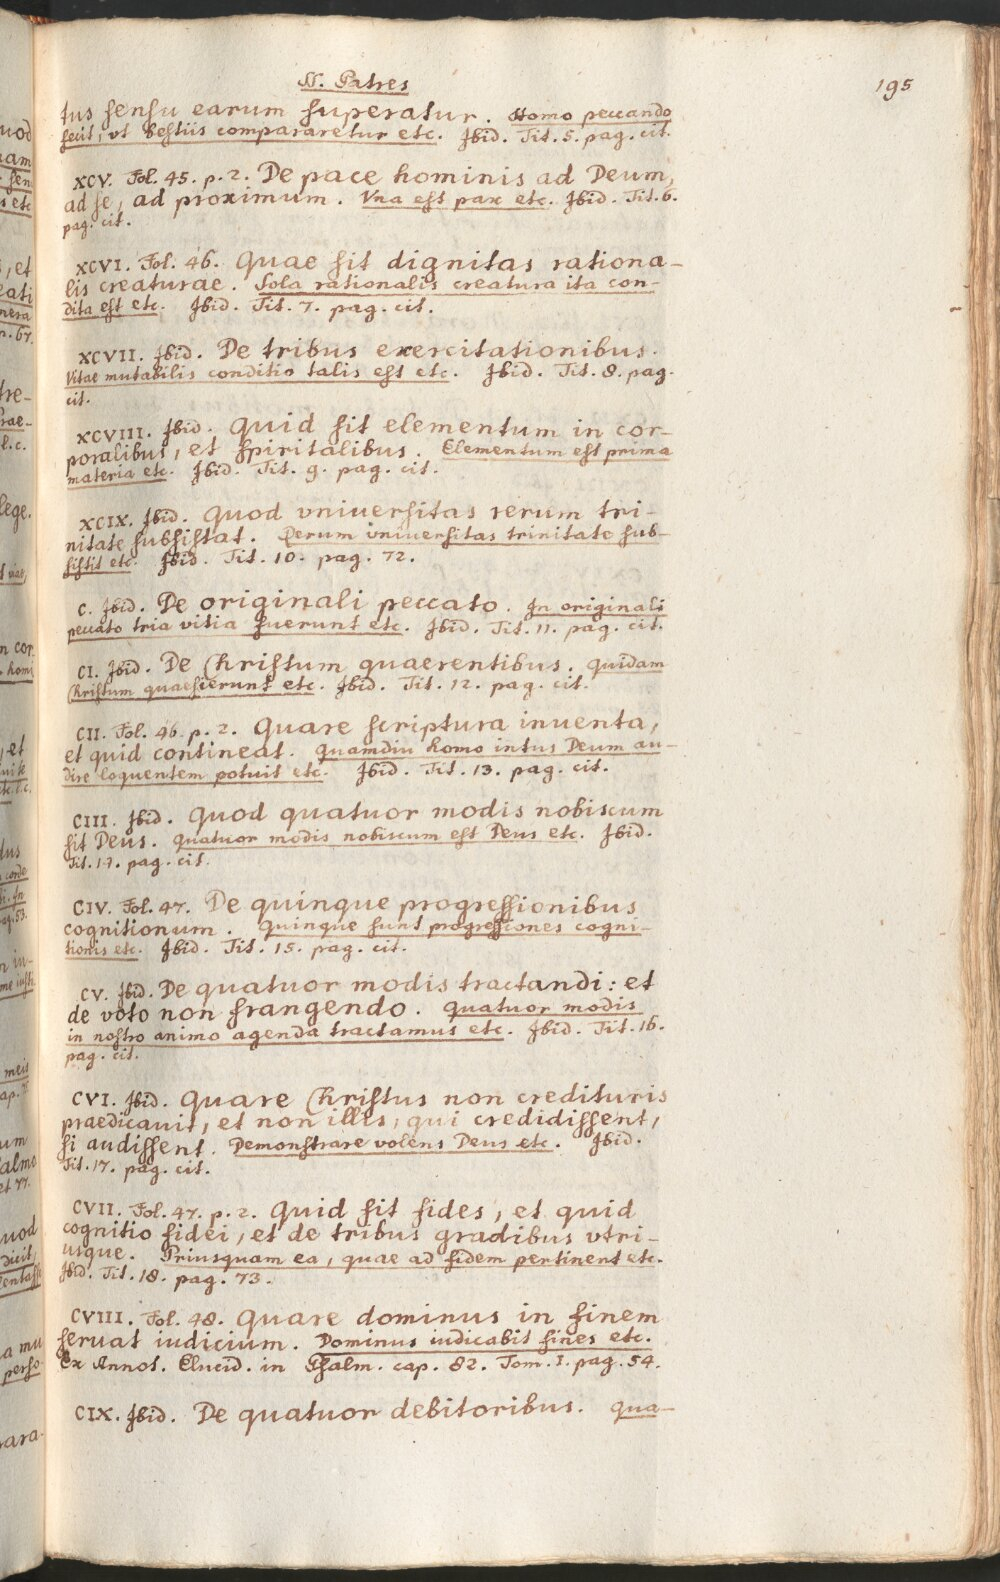 SS. Patres
195
tus sensu earum superatur. Homo peccando
fecit, vt bestiis compararetur etc. Ibid. Tit. 5. pag. cit.
XCV. Fol. 45. p. 2. De pace hominis ad Deum,
ad se, ad proximum. Vna est pax etc. Ibid. Tit. 6.
pag. cit.
XCVI. Fol. 46. Quae sit dignitas rationa-
lis creaturae. Sola rationalis creatura ita con-
dita est etc. Ibid. Tit. 7. pag. cit.
XCVII. Ibid. De tribus exercitationibus.
Vitae mutabilis conditio talis est etc. Ibid. Tit. 8. pag.
cit.
XCVIII. Ibid. Quid sit elementum in cor-
poralibus, et spiritalibus. Elementum est prima
materia etc. Ibid. Tit. 9. pag. cit.
XCIX. Ibid. Quod vniuersitas rerum tri-
nitate subsistat. Rerum vniuersitas trinitate sub-
sistit etc. Ibid. Tit. 10. pag. 72.
C. Ibid. De originali peccato. In originali
peccato tria vitia fuerunt etc. Ibid. Tit. 11. pag. cit.
CI. Ibid. De Christum quaerentibus. Quidam
Christum quaesierunt etc. Ibid. Tit. 12. pag. cit.
CII. Fol. 46. p. 2. Quare scriptura inuenta,
et quid contineat. Quamdiu homo intus Deum au-
dire loquentem potuit etc. Ibid. Tit. 13. pag. cit.
CIII. Ibid. Quod quatuor modis nobiscum
sit Deus. Quatuor modis nobiscum est Deus etc. Ibid.
Tit. 14. pag. cit.
CIV. Fol. 47. De quinque progressionibus
cognitionum. Quinque sunt progressiones cogni-
tionis etc. Ibid. Tit. 15. pag. cit.
CV. Ibid. De quatuor modis tractandi: et
de voto non frangendo. Quatuor modis
in nostro animo agenda tractamus etc. Ibid. Tit. 16.
pag. cit.
CVI. Ibid. Quare Christus non credituris
praedicauit, et non illis, qui credidissent,
si audissent. Demonstrare volens Deus etc. Ibid.
Tit. 17. pag. cit.
CVII. Fol. 47. p. 2. Quid sit fides, et quid
cognitio fidei, et de tribus gradibus vtri-
usque. Priusquam ea, quae ad fidem pertinent etc.
Ibid. Tit. 18. pag. 73.
CVIII. Fol. 48. Quare dominus in finem
seruat iudicium. Dominus iudicabit fines etc.
Ex Annot. Elucid. in Psalm. cap. 82. Tom. I. pag. 54.
CIX. Ibid. De quatuor debitoribus. Qua-